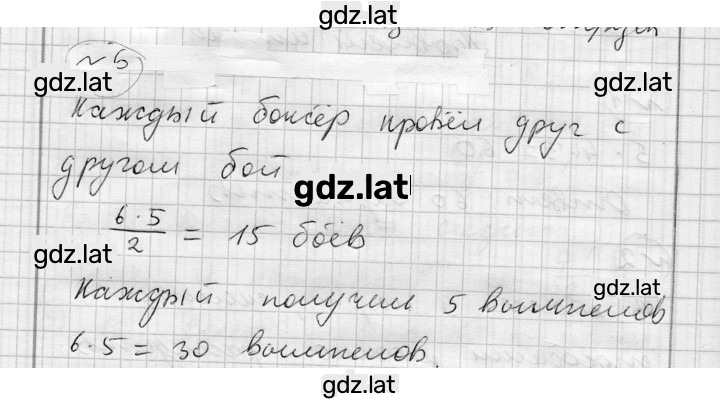 gdz.lat
№5
gdz.lat gdz.lat
Каждый боксёр провёл друг с
другом бой
gdz.lat
6·5/2 = 15 боёв
gdz.lat
gdz.lat
Каждый получил 5 вымпелов
6·5 = 30 вымпелов.
gdz.lat